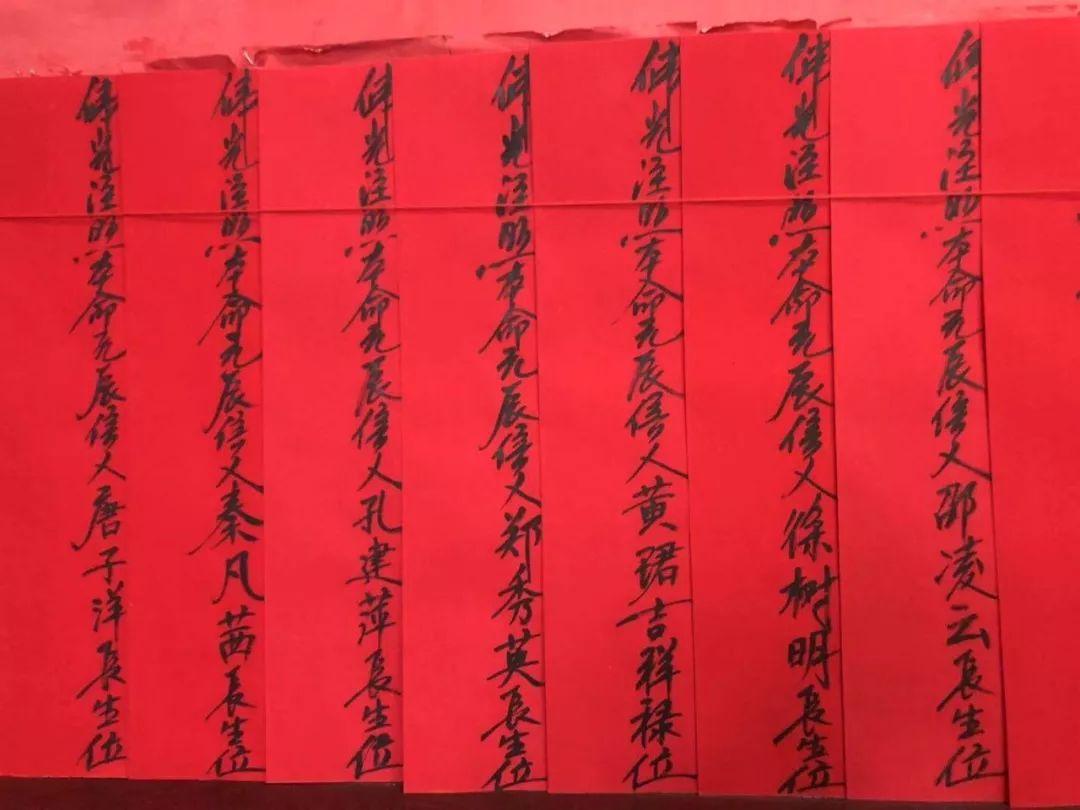 伴光注照本命元辰信人邵凌云長生位
伴光注照本命元辰信人徐树明長生位
伴光注照本命元辰信人黄珺吉祥禄位
伴光注照本命元辰信人郑秀英長生位
伴光注照本命元辰信人孔建萍長生位
伴光注照本命元辰信人秦凡茜長生位
伴光注照本命元辰信人唐子洋長生位